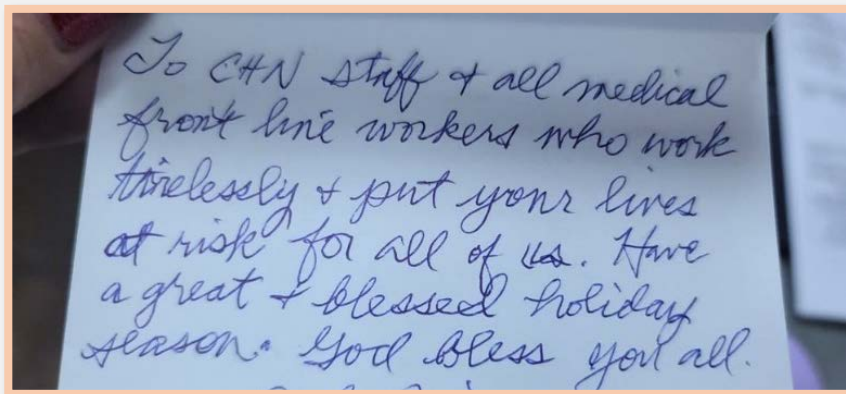 To CHN staff & all medical
front line workers who work
tirelessly & put your lives
at risk for all of us. Have
a great & blessed holiday
season. God bless you all.